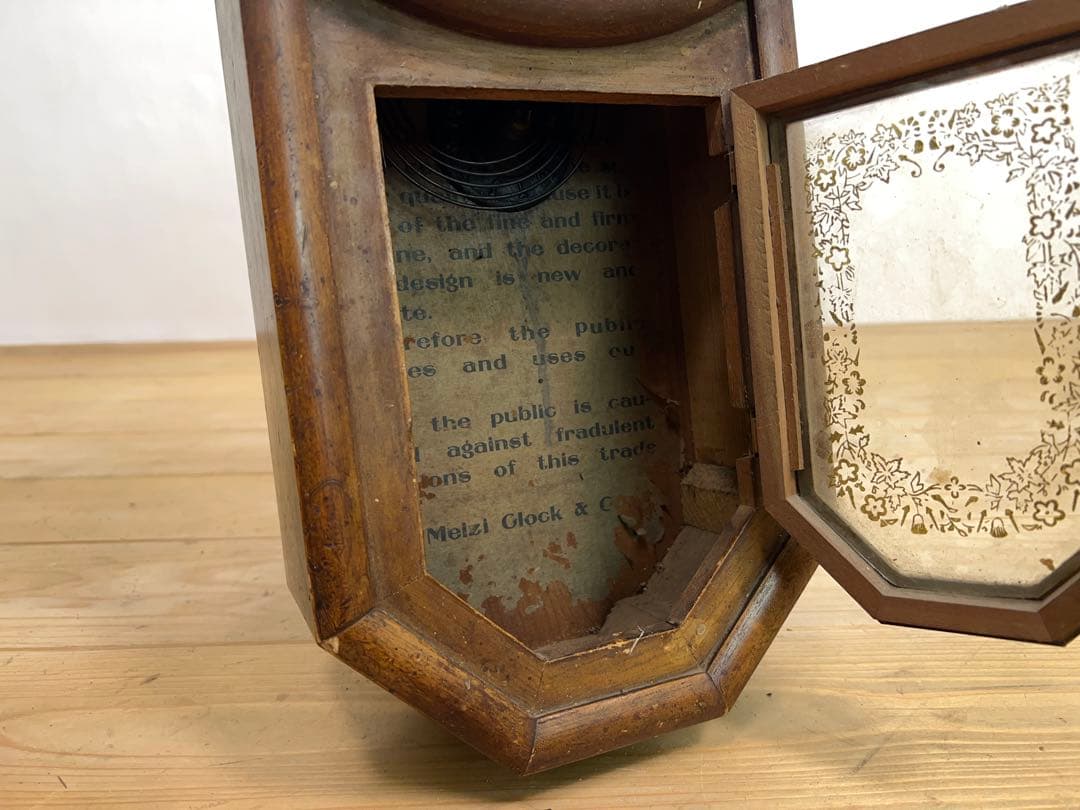 use it i
of the fine and firm
ne, and the decora
design is new and
te.
refore the public
es and uses ou
the public is cau-
against fradulent
ions of this trade
Meizi Clock & C